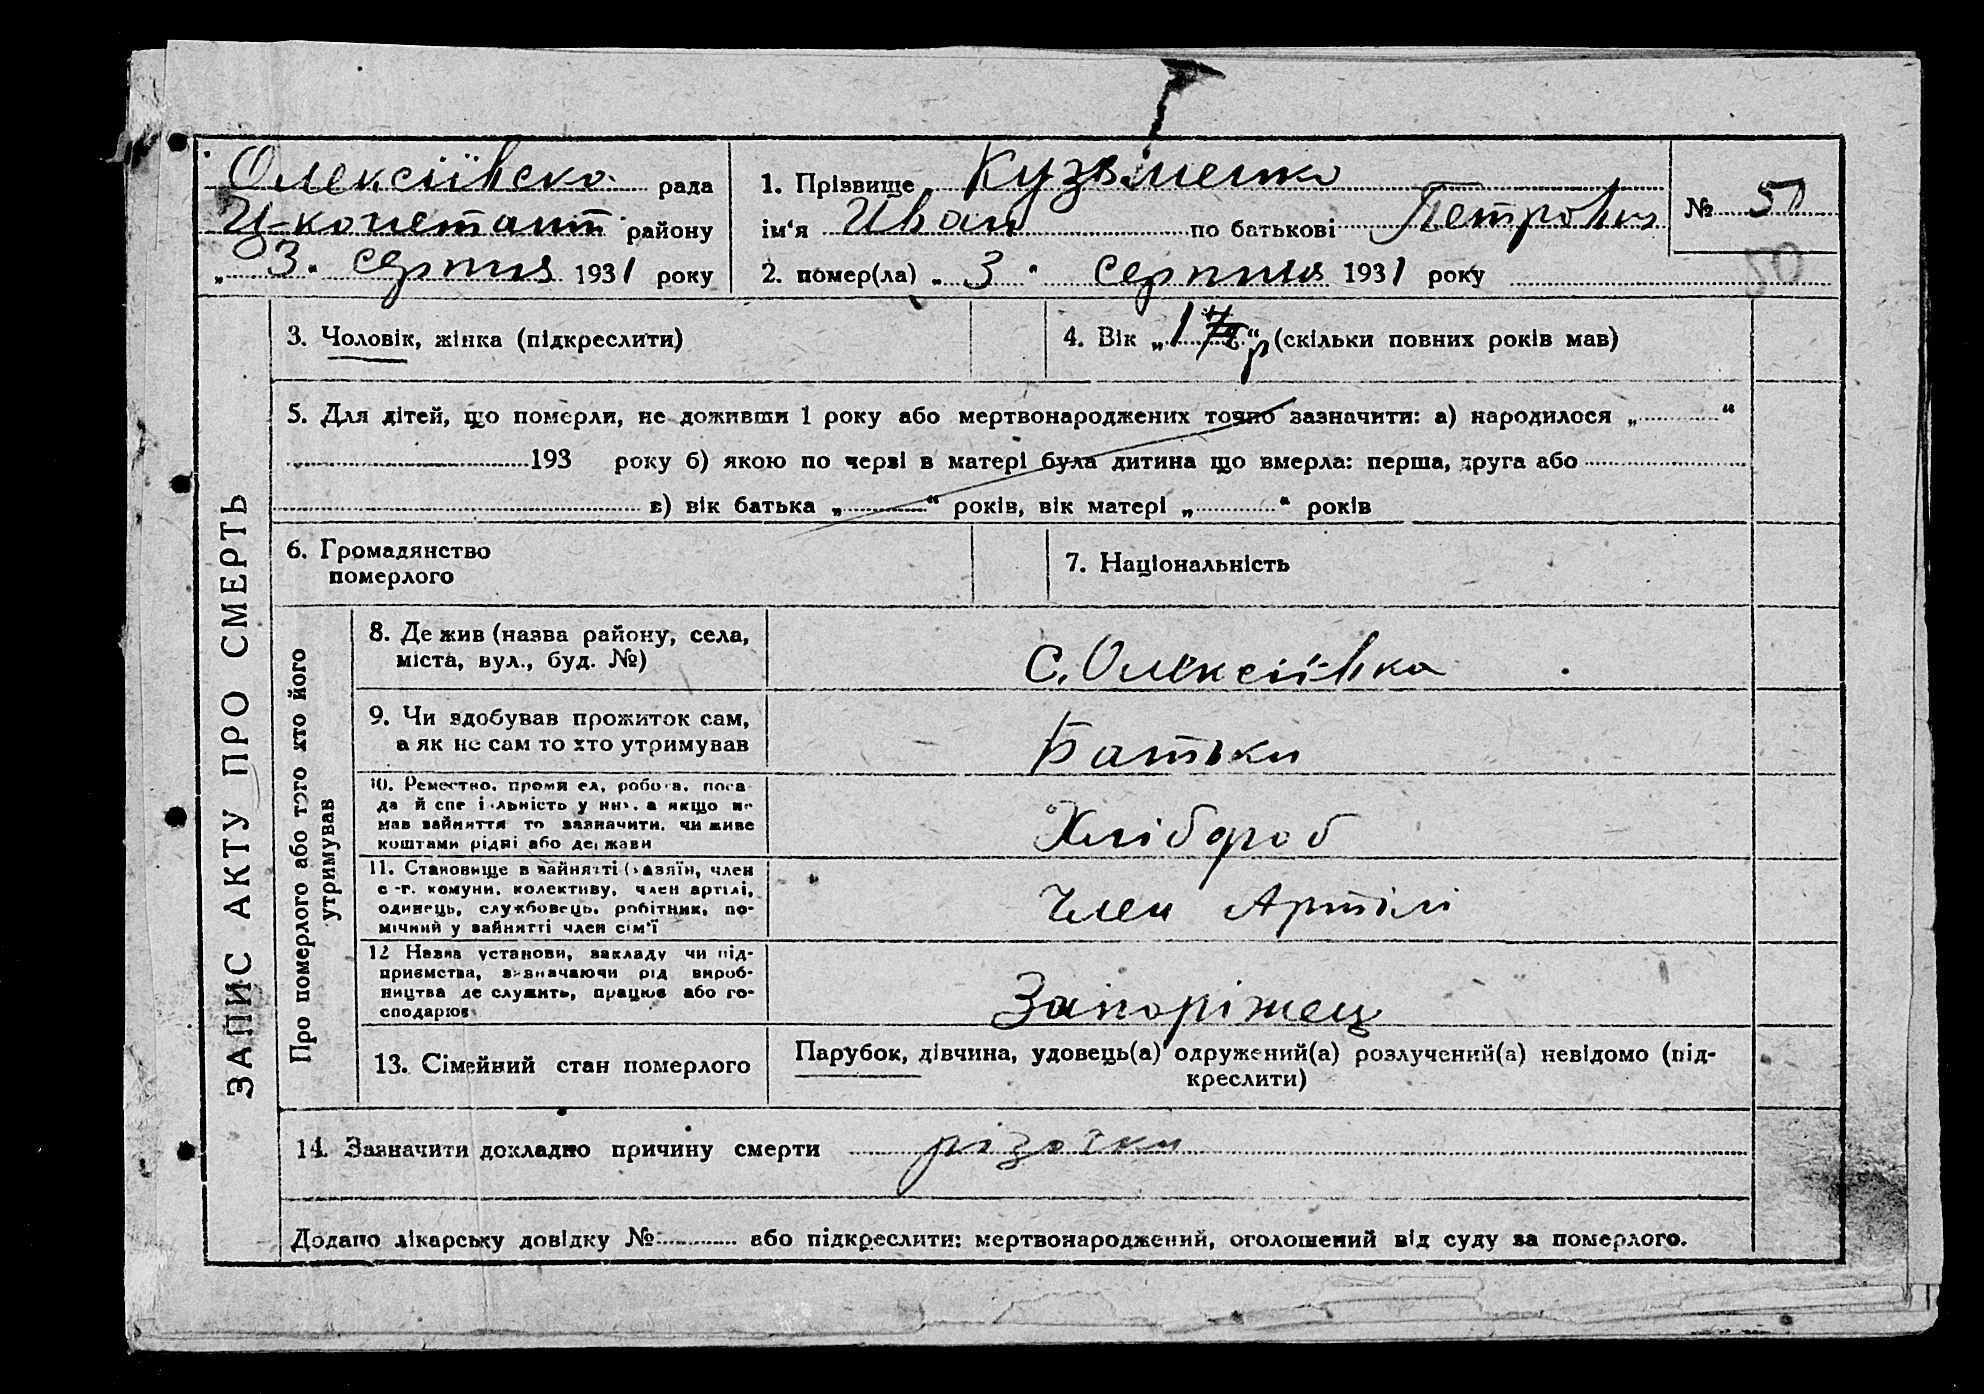 Олексіївско рада
Ц-констант району
„ 3 " серпня 1931 року
1. Прізвище Кузьменко
ім'я Иван по батькові Петрович
№ 50
50
2. помер(ла) „ 3 " серпня 1931 року
ЗАПИС АКТУ ПРО СМЕРТЬ
3. Чоловік, жінка (підкреслити)
4. Вік „ 1 р " (скільки повних років мав)
5. Для дітей, що померли, не доживши 1 року або мертвонароджених точно зазначити: а) народилося „ "
193 року б) якою по черзі в матері була дитина що вмерла: перша, друга або
в) вік батька „ " років, вік матері „ " років
6. Громадянство
померлого
7. Національність
Про померлого або того хто його
утримував
8. Де жив (назва району, села,
міста, вул., буд. №)
с. Олексіївка
9. Чи здобував прожиток сам,
а як не сам то хто утримував
Батьки
10. Ремество, проми ел, робота, поса
да й спе іяльність у ній, а якщо не
мав зайняття то зазначити, чи живе
коштами рідні або держави
Хлібороб
11. Становище в зайнятті (хазяїн, член
с.-г. комуни, колективу, член артілі,
одинець, службовець, робітник, по-
мічний у зайнятті член сім'ї
Член Артілі
12 Назва установи, закладу чи під-
приємства, визначаючи рід вироб-
ництва де служить, працює або го-
сподарює
Запоріжец
13. Сімейний стан померлого
Парубок, дівчина, удовець(а) одружений(а) розлучений(а) невідомо (під-
креслити)
14. Зазначити докладно причину смерти різачки
Додано лікарську довідку № або підкреслити: мертвонароджений, оголошений від суду за померлого.